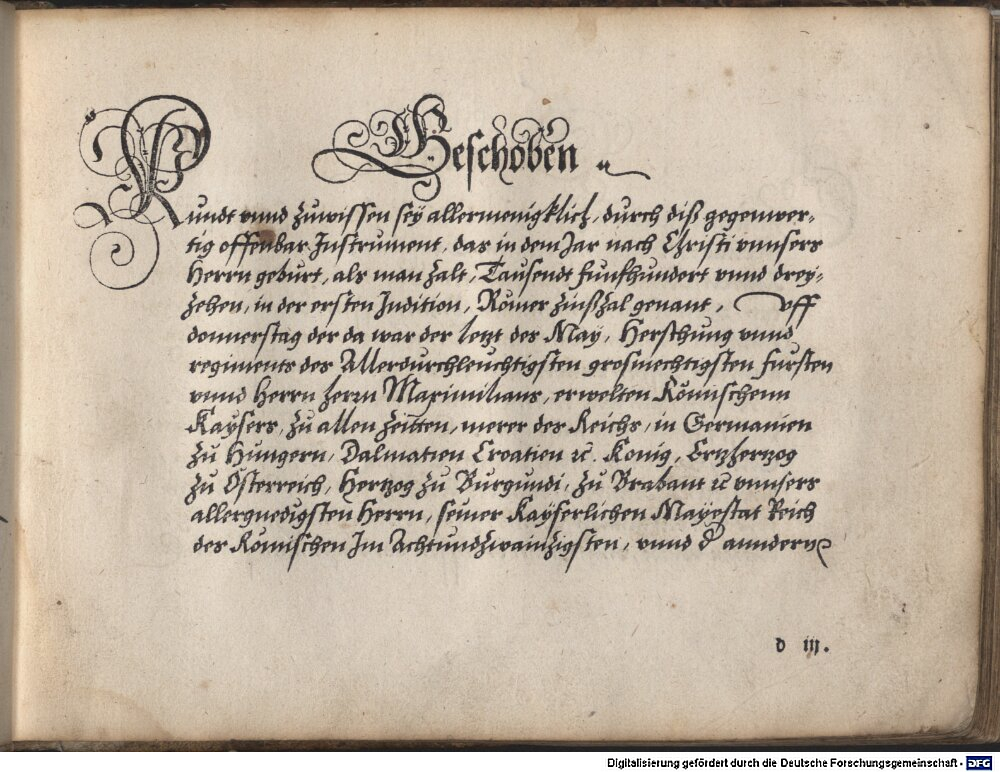 Geschoben
Kundt vnnd zuwissen sey allermenigklich, durch diß gegenwer-
tig offenbar Instrument, das in dem Jar nach Christi vnnsers
Herrn geburt, als man zalt, Tausendt funfhundert vnnd drey-
zehen, in der ersten Indition, Römer zinßzal genant, vff
donnerstag der da war der letzt des May, Herschung vnnd
regiments des Allerdurchleuchtigsten grosmechtigsten fursten
vnnd Herrn herrn Maximilians, erwelten Römischenn
Kaysers, zu allen zeitten, merer des Reichs, in Germanien
zu Hungern, Dalmatien Croatien ꝛc. König, Ertzhertzog
zu Österreich, Hertzog zu Burgundi, zu Brabant ꝛc vnnsers
allergnedigsten Herrn, seiner Kayserlichen Mayestat Reich
des Römischen Im Achtundzwainzigsten, vnnd d anndern
d iii.
Digitalisierung gefördert durch die Deutsche Forschungsgemeinschaft - DFG